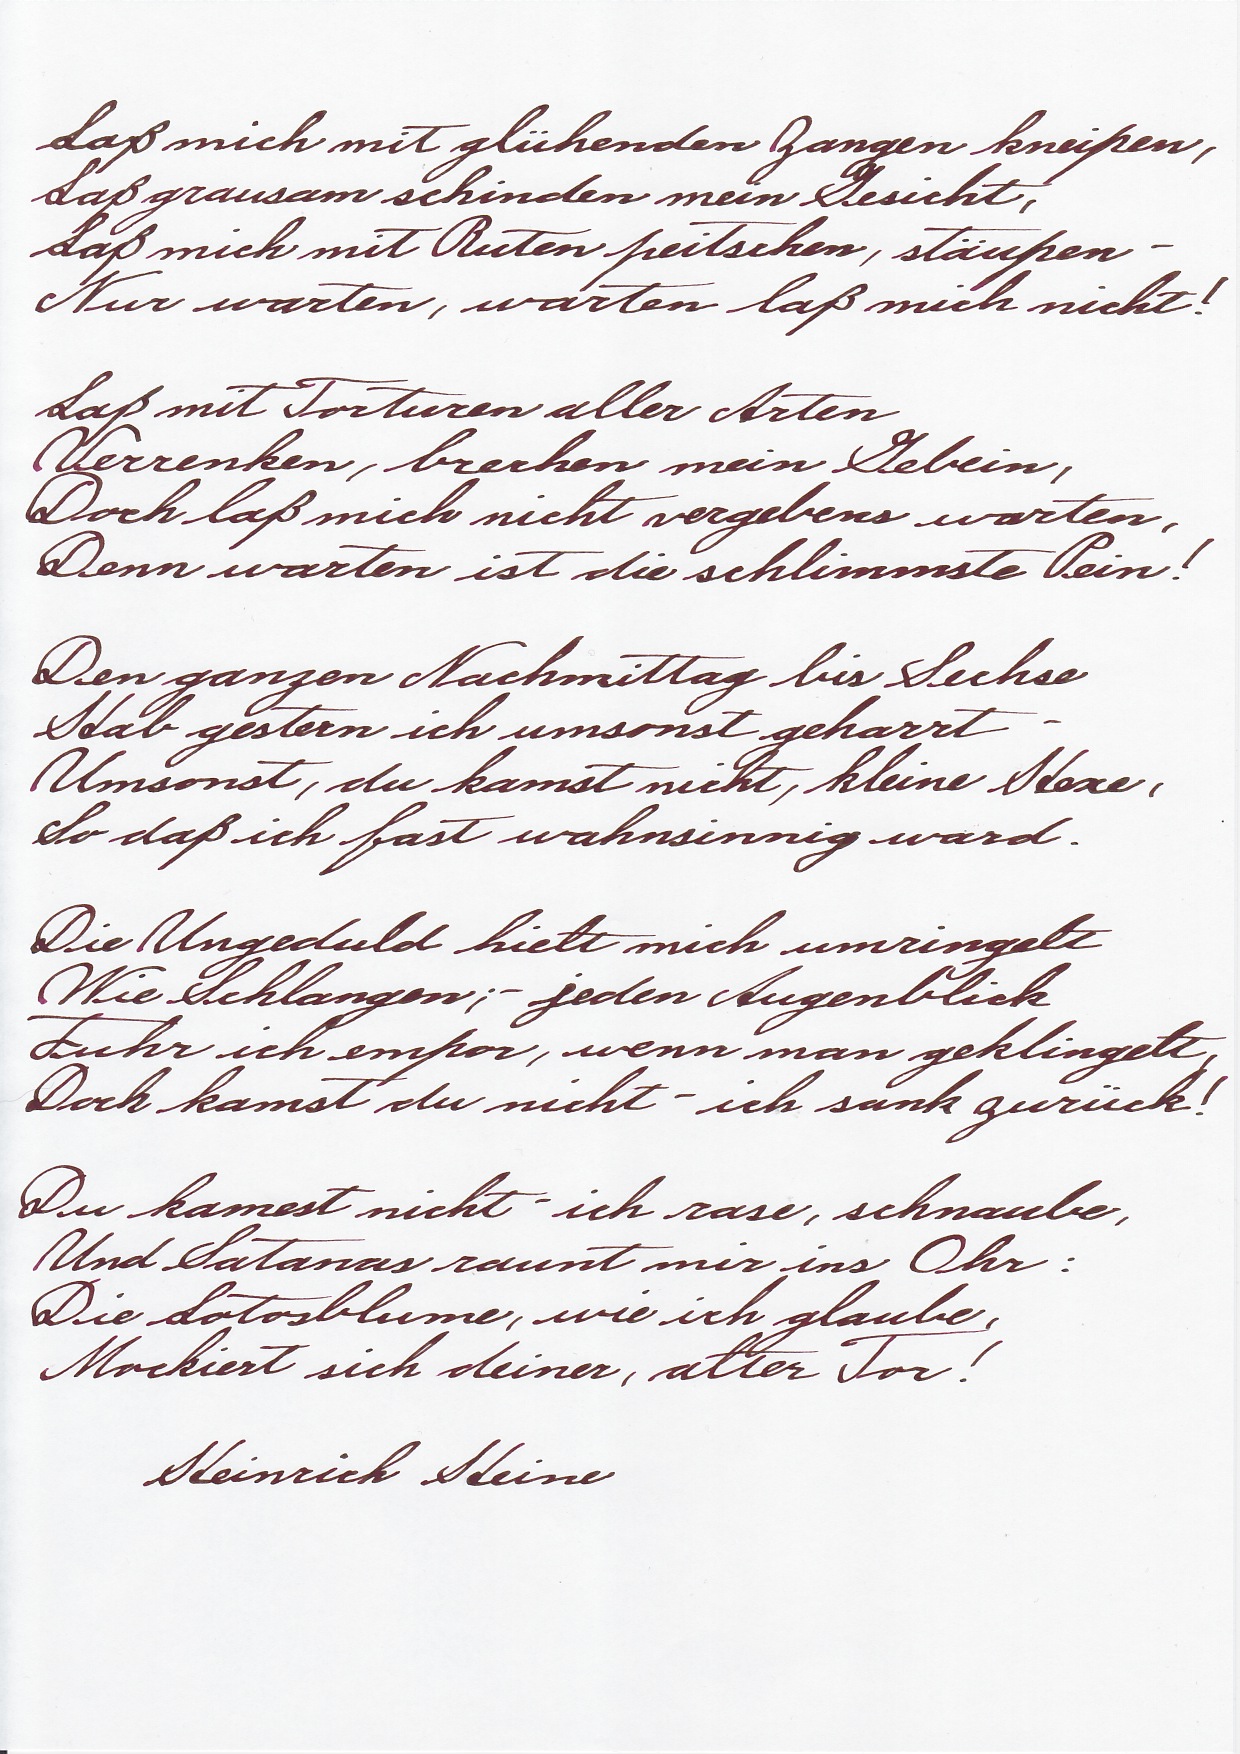 Laß mich mit glühenden Zangen kneipen,
Laß grausam schinden mein Gesicht,
Laß mich mit Ruten peitschen, stäupen -
Nur warten, warten laß mich nicht!
Laß mit Torturen aller Arten
Verrenken, brechen mein Gebein,
Doch laß mich nicht vergebens warten,
Denn warten ist die schlimmste Pein!
Den ganzen Nachmittag bis Sechse
Hab gestern ich umsonst geharrt -
Umsonst, du kamst nicht, kleine Hexe,
So daß ich fast wahnsinnig ward.
Die Ungeduld hielt mich umringelt
Wie Schlangen; - jeden Augenblick
Fuhr ich empor, wenn man geklingelt,
Doch kamst du nicht - ich sank zurück!
Du kamest nicht - ich rase, schnaube,
Und Satanas raunt mir ins Ohr:
Die Lotosblume, wie ich glaube,
Mockiert sich deiner, alter Tor!
Heinrich Heine